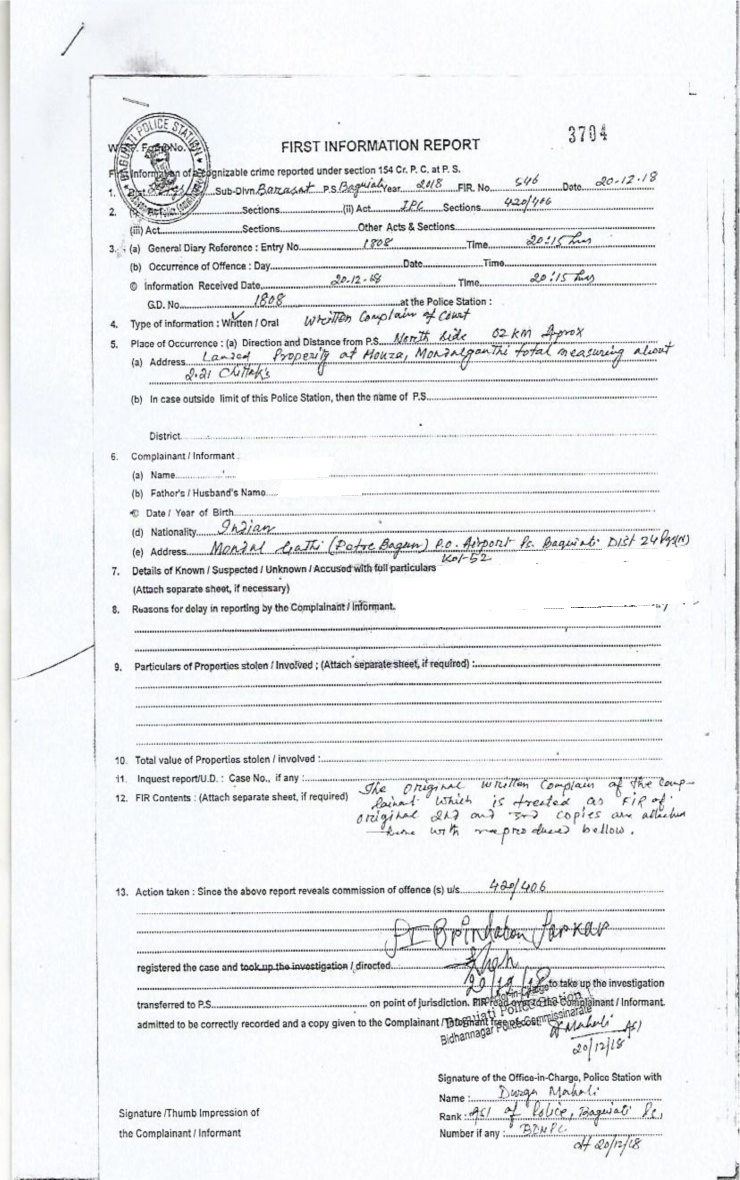 3704
BAGUIATI POLICE STATION
FIRST INFORMATION REPORT
First Information of a cognizable crime reported under section 154 Cr. P. C. at P. S.
1. Sub-Divn. Barasat P.S. Baguiati Year 2018 FIR. No. 546 Date 20-12-18
2. Sections (ii) Act IPC Sections 420/406
(iii) Act Sections Other Acts & Sections
3. (a) General Diary Reference : Entry No. 1808 Time 20:15 hrs
(b) Occurrence of Offence : Day Date Time
© Information Received Date 20-12-18 Time 20:15 hrs
G.D. No. 1808 at the Police Station :
4. Type of information : Written / Oral Written Complain of Court
5. Place of Occurrence : (a) Direction and Distance from P.S. North Side 02 KM Aprox
(a) Address Landed Property at Mouza, Mondalganthi total measuring about
2.21 Chittaks
(b) In case outside limit of this Police Station, then the name of P.S.
District
6. Complainant / Informant :
(a) Name
(b) Father's / Husband's Name
© Date / Year of Birth
(d) Nationality Indian
(e) Address Mondal Gathi P.O. Airport Ps. Baguiati Dist 24 Pgs(N)
Kol-52
7. Details of Known / Suspected / Unknown / Accused with full particulars
(Attach separate sheet, if necessary)
8. Reasons for delay in reporting by the Complainant / Informant.
9. Particulars of Properties stolen / Involved ; (Attach separate sheet, if required) :
10. Total value of Properties stolen / involved :
11. Inquest report/U.D. : Case No., if any :
12. FIR Contents : (Attach separate sheet, if required) The original written Complain of the Comp-
lainat which is treated as FIR of
original 2nd and 3rd copies are attached
here with reproduced bellow.
13. Action taken : Since the above report reveals commission of offence (s) u/s. 420/406
PI Brindabon Sarkar
registered the case and took up the investigation / directed
20/12/18 to take up the investigation
transferred to P.S. on point of jurisdiction. FIR read over to the Complainant / Informant.
admitted to be correctly recorded and a copy given to the Complainant / Informant free of cost.
Baguiati Police Station
Bidhannagar Police Commissinarate
D Mahali ASI
20/12/18
Signature of the Office-in-Charge, Police Station with
Name : Durga Mahali
Rank : ASI of Police, Baguiati Ps,
Number if any : BDNPC
dt 20/12/18
Signature /Thumb Impression of
the Complainant / Informant